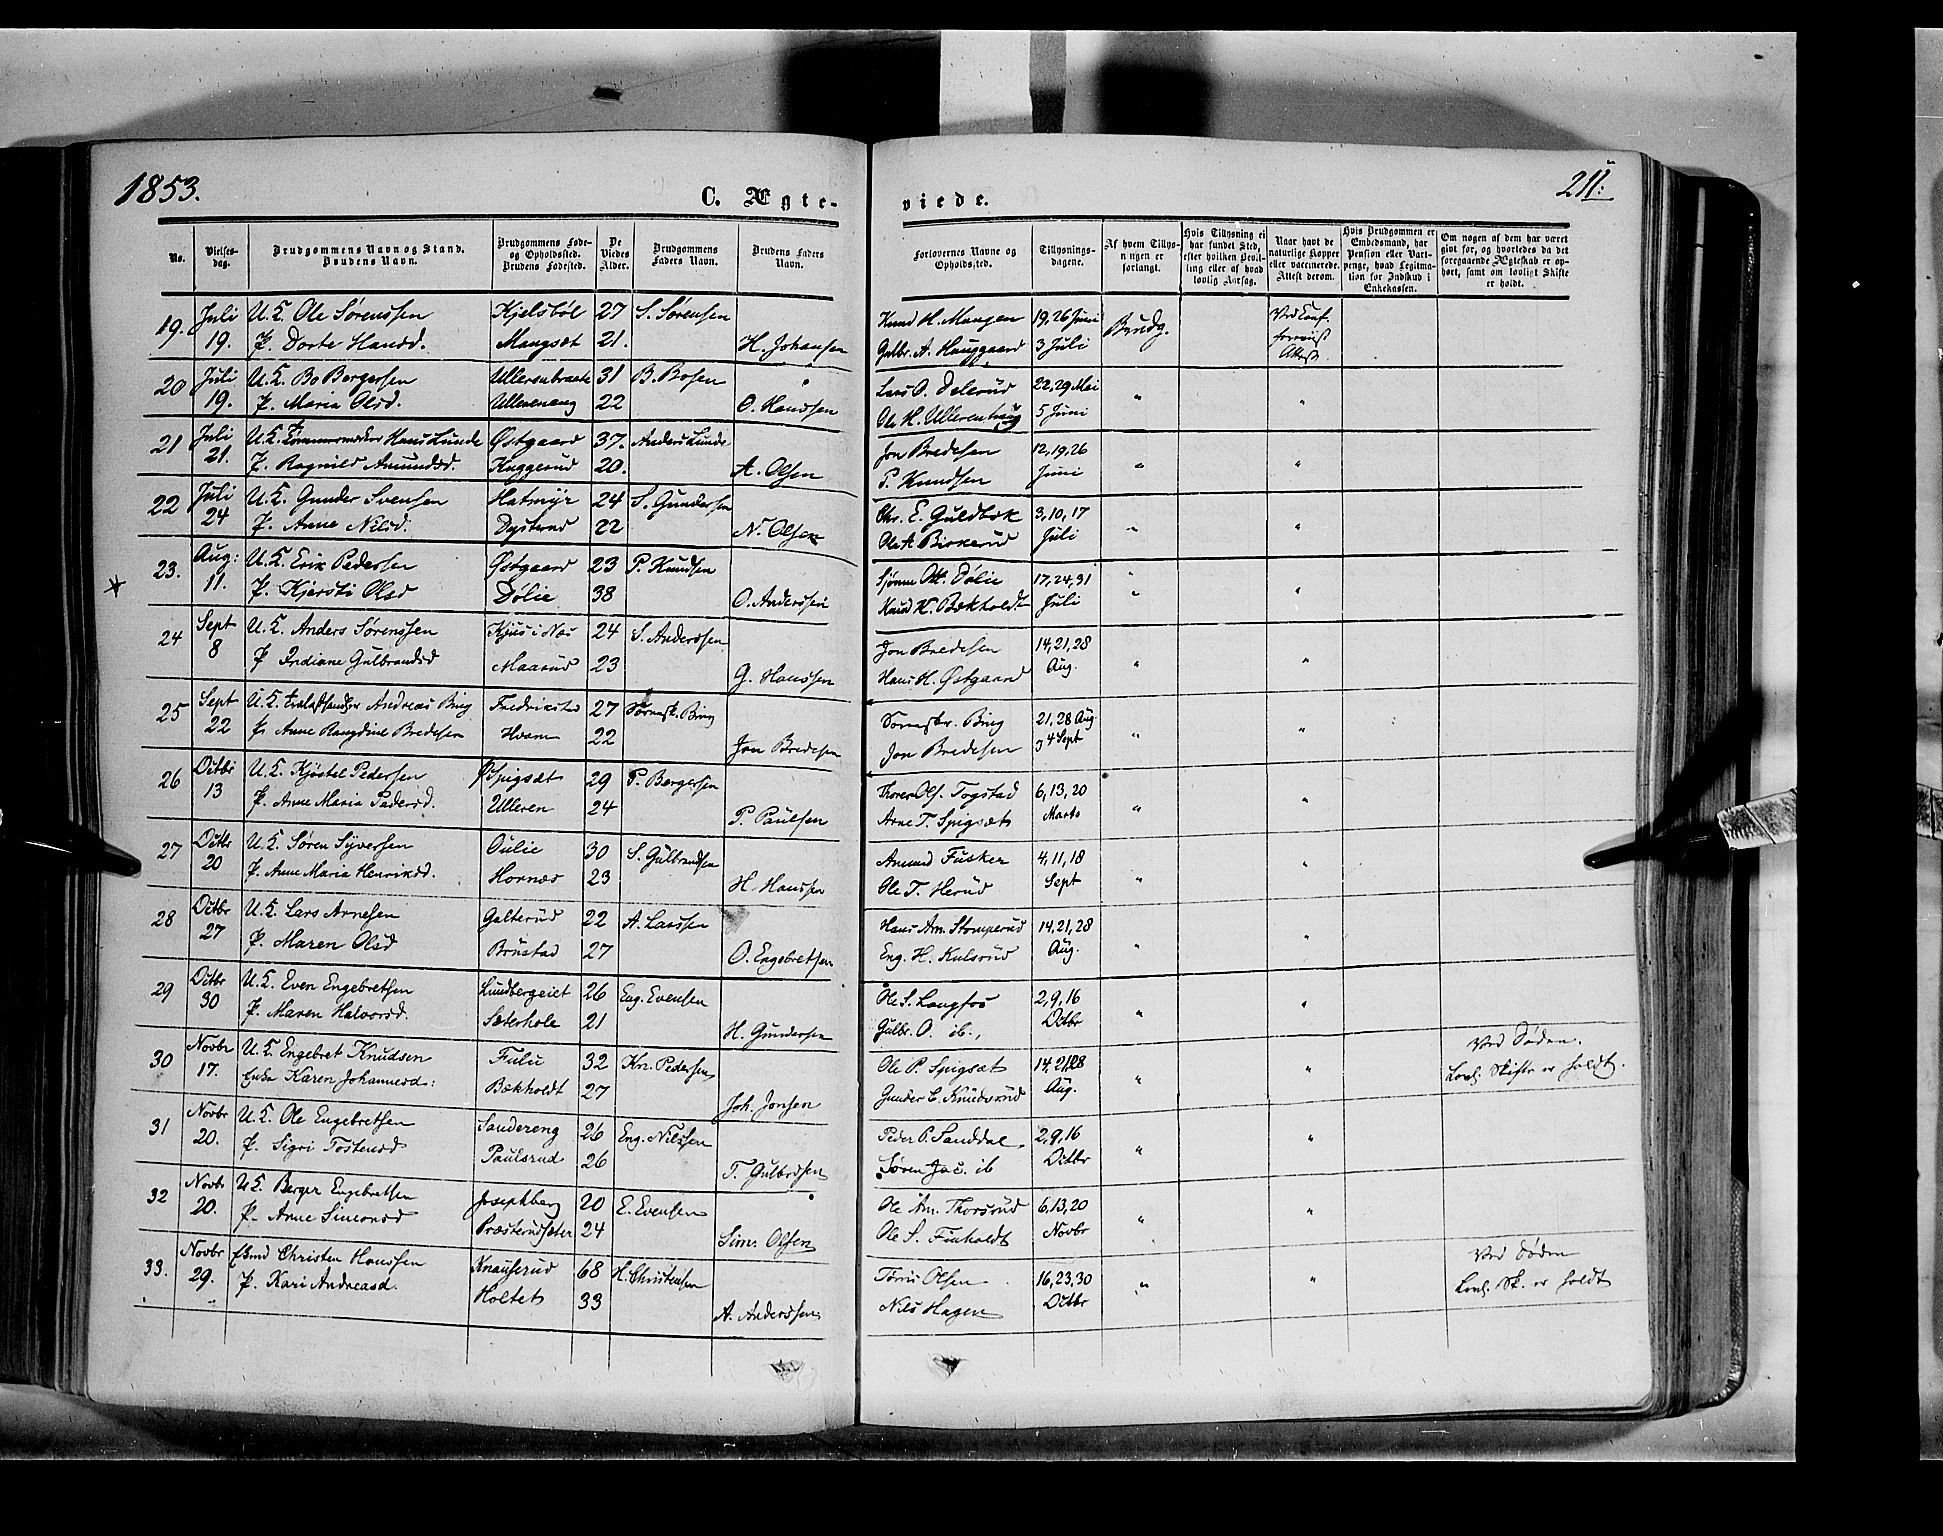 1853.
C. Ægte-
viede.
211:
No.
Vielses-
dag.
Brudgommens Navn og Stand.
Brudens Navn.
Brudgommens Føde-
og Opholdssted.
Brudens Fødested.
De
Viedes
Alder.
Brudgommens
Faders Navn.
Brudens Faders
Navn.
Forlovernes Navne og
Opholdssted.
Tillysnings-
dagene.
Af hvem Tillys-
ningen er
forlangt.
Hvis Tillysning ei
har fundet Sted,
efter hvilken Bevil-
ling eller af hvad
lovlig Aarsag.
Naar havt de
naturlige Kopper
eller vaccinerede.
Attest derom.
Hvis Brudgommen er
Embedsmand, har
Pension eller Vart-
penge, hvad Legitima-
tion for Indskud i
Enkekassen.
Om nogen af dem har været
gift før, og hvorledes da det
foregaaende Ægteskab er op-
hørt, samt om lovligt Skifte
er holdt.
19. Juli U.K. Ole Sørenssen Kjelsbøl 27 S. Sørensen Knud H. Mangen 19, 26 Juni Brudg. Ved Conf.
19. P. Dorte Hansd. Mangsæt 21. H. Johansen Gulbr. A. Hauggaard 3 Juli
Attest
20 Juli U.K. Bo Bergersen Ullerenbraate 31 B. Bosen Lars O. Delerud 22, 29 Mai " "
19. P. Maria Olsd. Ullereneng 22 O. Hanssen Ole H. Ullerenhaug 5 Juni
21 Juli U.K. Hans Lunde Østgaard 37. Anders Lunde Jon Bredesen 12, 19, 26 " "
21. P. Ragnild Amundsd. Kuggerud 20. A. Olsen P. Knudsen Juni
22 Juli U.K. Gunder Svensen Hatmyr 24 S. Gundersen Chr. E. Guldbæk 3, 10, 17 " "
24 P. Anne Nilsd. Dysterud 22 N. Olsen Ole A. Birkerud Juli
23. Aug: U.K. Erik Pedersen Østgaard 23 P. Knudsen Ott. Dølie 17, 24, 31 " "
11. P. Kjersti Olsd Dølie 38 O. Anderssen Knud K. Bækholdt Juli
24 Sept U.K. Anders Sørenssen Kjus i Næs 24 S. Anderssen Jon Bredesen 14, 21, 28 " "
8 P. Indiane Gulbrandsd Maarud 23 G. Hanssen Hans H. Østgaard Aug.
25 Sept U.K. Andreas Bing Fredrikstad 27 Sorensk. Bing Sorenskr. Bing 21, 28 Aug. " "
22 P. Anne Randine Bredesen Hvam 22 Jon Bredesen Jon Bredesen 4 Sept
26 Octbr U.K. Kjøstel Pedersen Spigsæt 29 P. Bergersen Thorer Ols. Togstad 6, 13, 20 " "
13 P. Anne Maria Pedersd. Ulleren 24 P. Paulsen Arne T. Spigsæt Marts
27 Octbr U.K. Søren Syversen Oulie 30 S. Gulbrandsen Amund Fusker 4, 11, 18 " "
20 P. Anne Maria Henriksd. Hornæs 23 H. Hanssen Ole T. Herud Sept
28 Octbr U.K. Lars Arnesen Galterud 22 A. Larssen Hans Am. Stomperud 14, 21, 28 " "
27 P. Maren Olsd Brustad 27 O. Engebretsen Eng. H. Kulsrud Aug.
29 Octbr U.K. Even Engebretsen Lundbergeiet 26 Eng. Evensen Ole S. Langfos 2, 9, 16 " "
30 P. Maren Halvorsd. Sæterhole 21 H. Gundersen Gulbr. O. ib., Octbr
30 Novbr U.K. Engebret Knudsen Fulu 32 Kn. Pedersen Ole P. Spigsæt 14, 21, 28 " " Ved Døden.
17. Enke Karen Johannesd: Bækholdt 27 Joh. Jonsen Gunder E. Knudsrud Aug. Lovl. Skifte er holdt.
31 Novbr U.K. Ole Engebretsen Sandereng 26 Eng. Nilssen Peder P. Sanddal 2, 9, 16 " "
20. P. Sigri Tostensd Paulsrud 26 T. Gulbrdsen Søren Jac. ib Octbr
32 Novbr U.K. Berger Engebretsen Josephberg 20 E. Evensen Ole Am. Thorsrud 6, 13, 20 " "
20. P. Anne Simensd Præsterudsæter 24 Sim. Olsen Ole S. Finholdt Novbr
33. Novbr Ekmd Christen Hanssen Knauserud 68 H. Christensen Olsen 16, 23, 30 " " Ved Døden
29. P. Kari Andreasd. Holtet 33 A. Anderssen Nils Hagen Octbr Lovl. Sk. er holdt